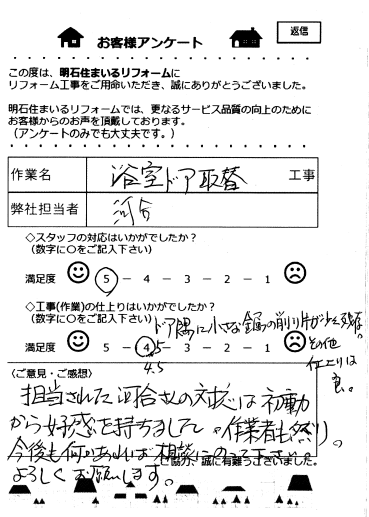 返信
お客様アンケート
この度は、明石住まいるリフォームに
リフォーム工事をご用命いただき、誠にありがとうございました。
明石住まいるリフォームでは、更なるサービス品質の向上のために
お客様からのお声を頂戴しております。
（アンケートのみでも大丈夫です。）
作業名 浴室ドア取替 工事
弊社担当者 河合
◇スタッフの対応はいかがでしたか？
（数字に○をご記入下さい）
満足度 5 － 4 － 3 － 2 － 1
◇工事(作業)の仕上りはいかがでしたか？
（数字に○をご記入下さい）
ドア隅に小さな鋼の削り片が少々残存。
その他
仕上りは
良。
満足度 5 － 4 － 3 － 2 － 1
4.5
（ご意見・ご感想）
担当された河合さんの対応は初動
から好感を持ちました。作業者も然り。
今後も何かあれば相談にのって下さい。
よろしくお願いします。
ご協力、誠に有難うございました。